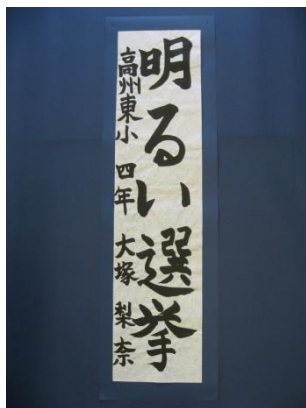 明るい選挙
高州東小 四年 大塚 梨奈